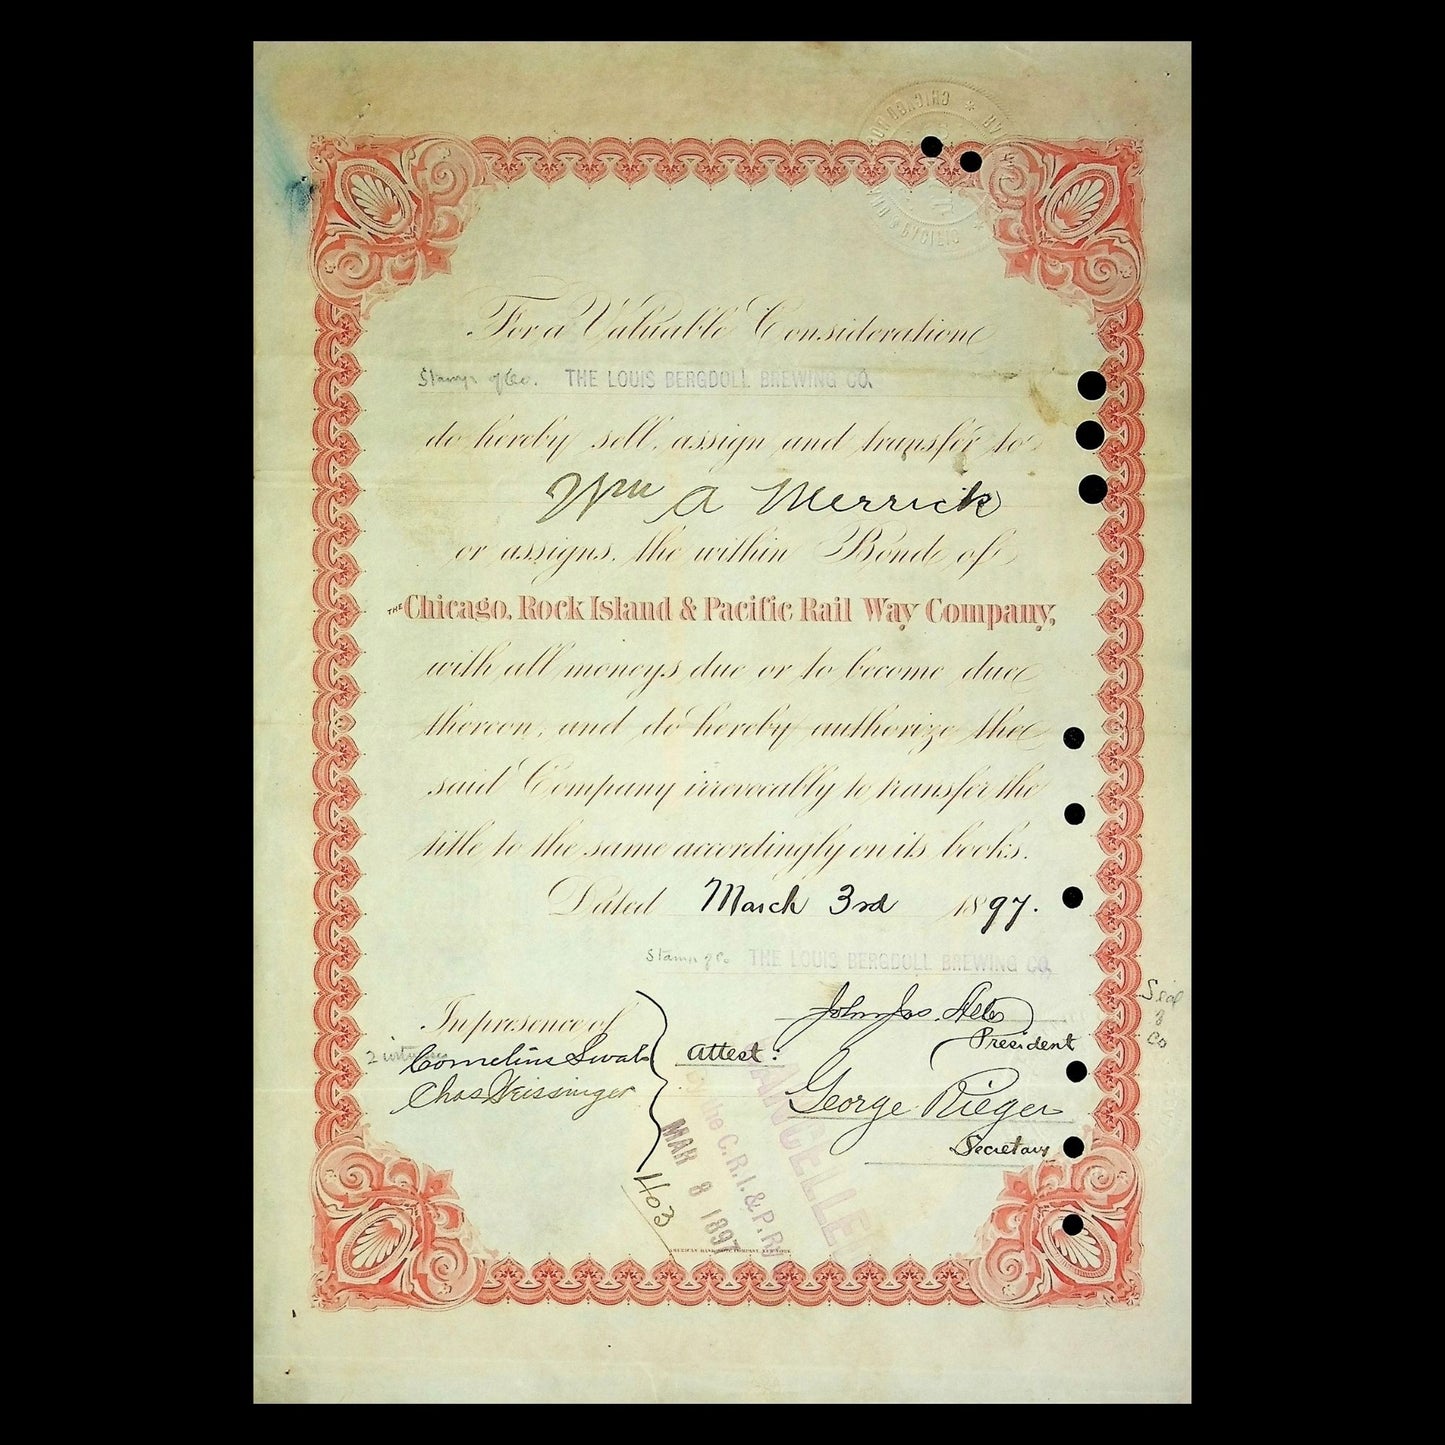 For a Valuable Consideration
Stamp of Co. THE LOUIS BERGDOLL BREWING CO.
do hereby sell, assign and transfer to
Wm A Merrick
or assigns, the within Bond of
THE Chicago, Rock Island & Pacific Rail Way Company,
with all moneys due or to become due
thereon, and do hereby authorize the
said Company irrevocably to transfer the
title to the same accordingly on its books.
Dated March 3rd 1897.
Stamp of Co THE LOUIS BERGDOLL BREWING CO.
John Jos. Alter
President
Seal
Co
In presence of
Cornelius Swab
Chas Weissinger
Attest:
George Rieger
Secretary
CANCELLED
By the C.R.I.&P.Ry
MAR 8 1897
403
AMERICAN BANK NOTE COMPANY, NEW YORK.